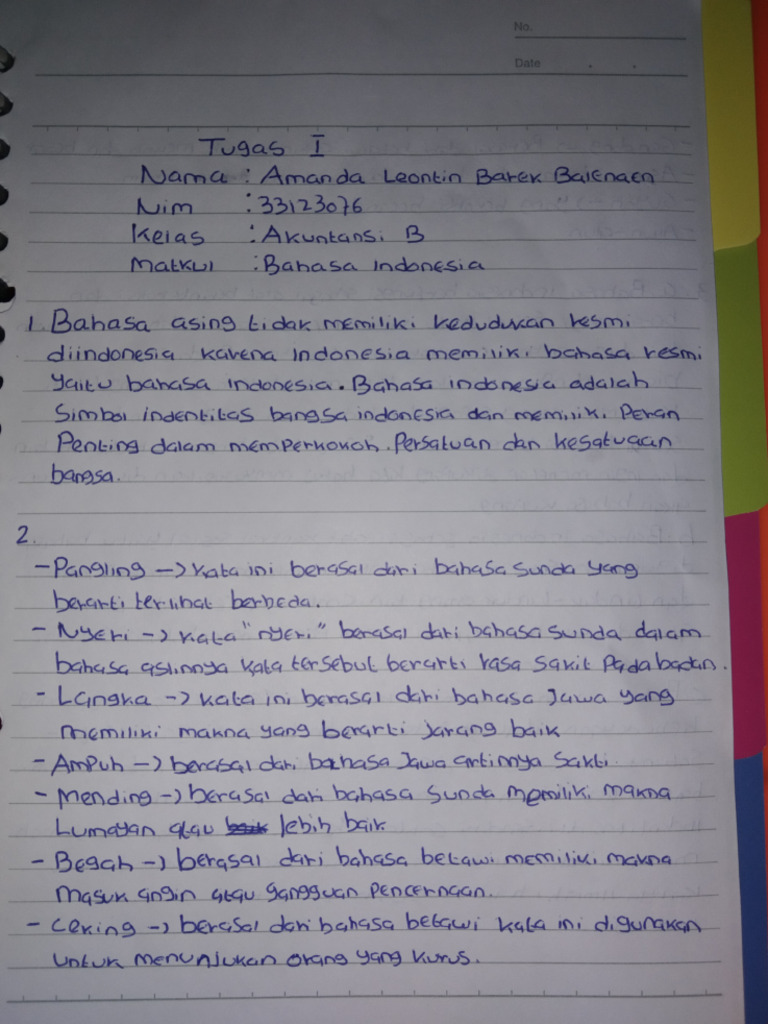 No.
Date
Tugas I
Nama : Amanda Leontin Barek Balenaen
Nim : 33123076
Kelas : Akuntansi B
Matkul : Bahasa Indonesia
1. Bahasa asing tidak memiliki kedudukan resmi
diindonesia karena Indonesia memiliki bahasa resmi
yaitu bahasa indonesia. Bahasa indonesia adalah
Simbol indentitas bangsa indonesia dan memiliki Peran
Penting dalam memperkokoh Persatuan dan kesatuaan
bangsa.
2.
- Pangling -> kata ini berasal dari bahasa sunda yang
berarti terlihat berbeda.
- Nyeri -> kata "nyeri" berasal dari bahasa sunda dalam
bahasa aslinnya kata tersebut berarti rasa sakit Pada badan.
- Langka -> kata ini berasal dari bahasa Jawa yang
memiliki makna yang berarti jarang baik
- Ampuh -> berasal dari bahasa Jawa artinnya sakti.
- Mending -> berasal dari bahasa sunda memiliki makna
Lumayan atau lebih baik
- Begah -> berasal dari bahasa betawi memiliki makna
masuk angin atau gangguan Pencernaan.
- Ceking -> berasal dari bahasa betawi kata ini digunakan
untuk menunjukan orang yang kurus.